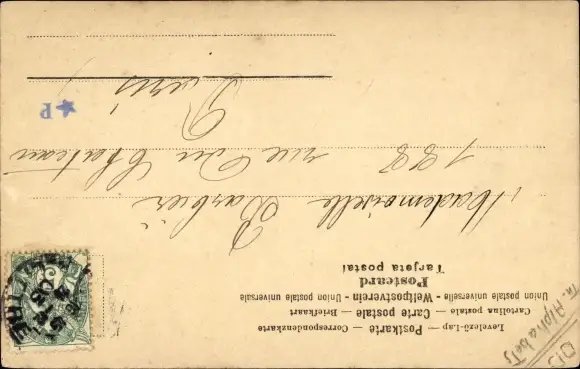 Levelező-Lap
Postkarte — Correspondenzkarte
Carte postale — Briefkaart
Cartolina postale
Union postale universelle - Weltpostverein - Union postale universale
Postcard
Tarjeta postal
Mademoiselle Barbier
188 rue du Chateau
Paris
P
Th. Alphabets